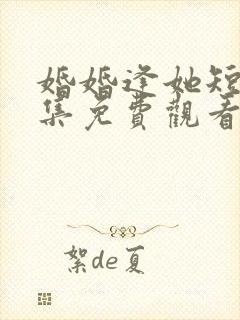 婚婚逢她短
集免費觀看
絮de夏